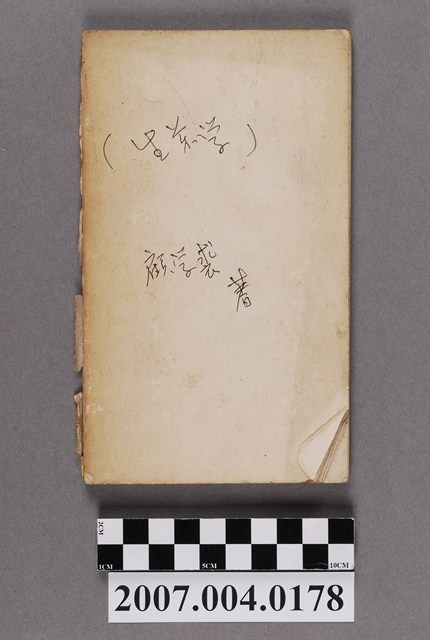 (生药学)
顧学裘
著
2CM
1CM 5CM 10CM
2007.004.0178